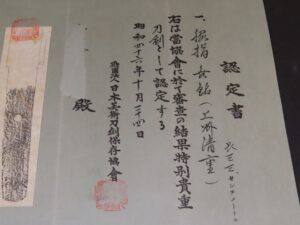 認定書
一、脇指 無銘(上州清重)
右は當協會に於て審査の結果特別貴重
刀剣として認定する
昭和四十六年十月二十四日
財團法人日本美術刀剣保存協會
殿